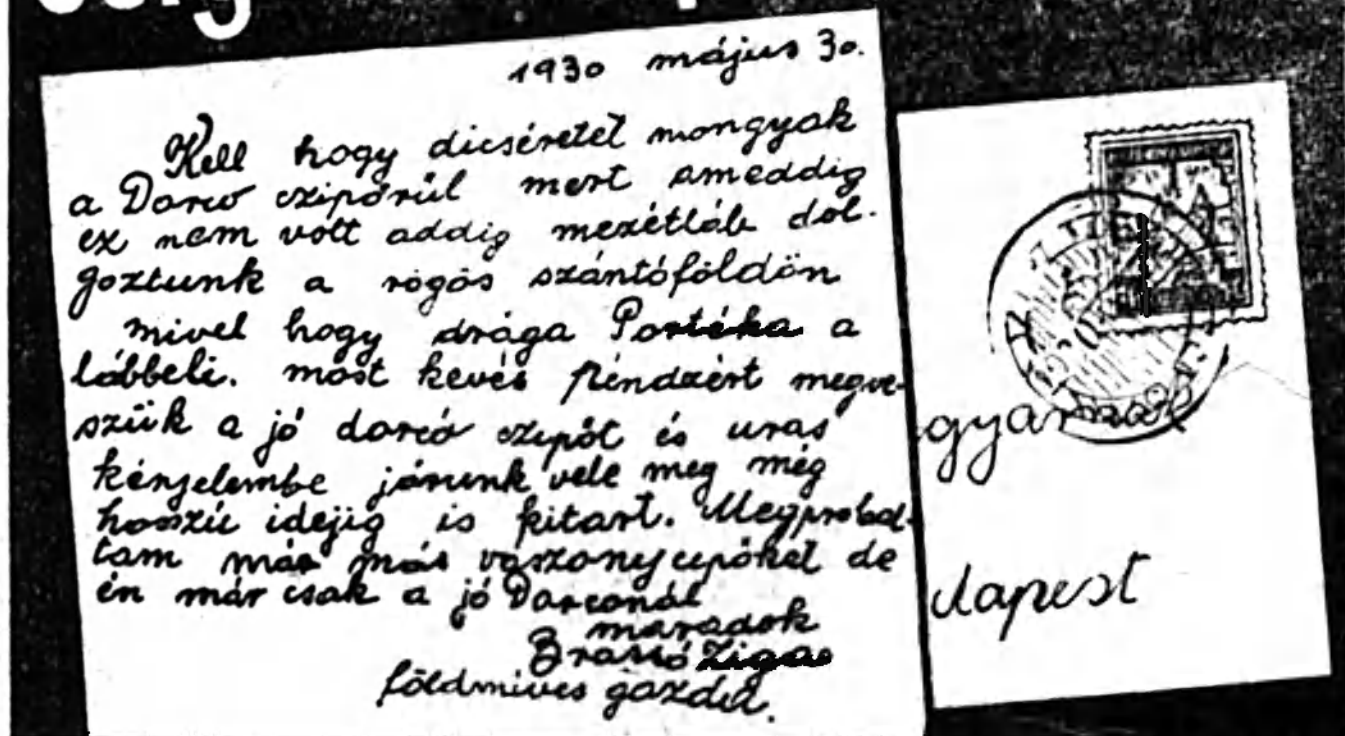 1930 május 30.
Kell hogy dicséretet mongyak
a Darco czipőrül mert ameddig
ez nem vott addig mezétláb dol-
goztunk a rögös szántóföldön
mivel hogy drága Portéka a
lábbeli. most kevés péndzért megve-
szük a jó darcó czipőt és uras
kényelembe járunk vele meg még
hosszú idejig is kitart. Megprobál-
tam már más vászonycipőket de
én már csak a jó Darconál
maradok
földmives gazda.
gyar
dapest